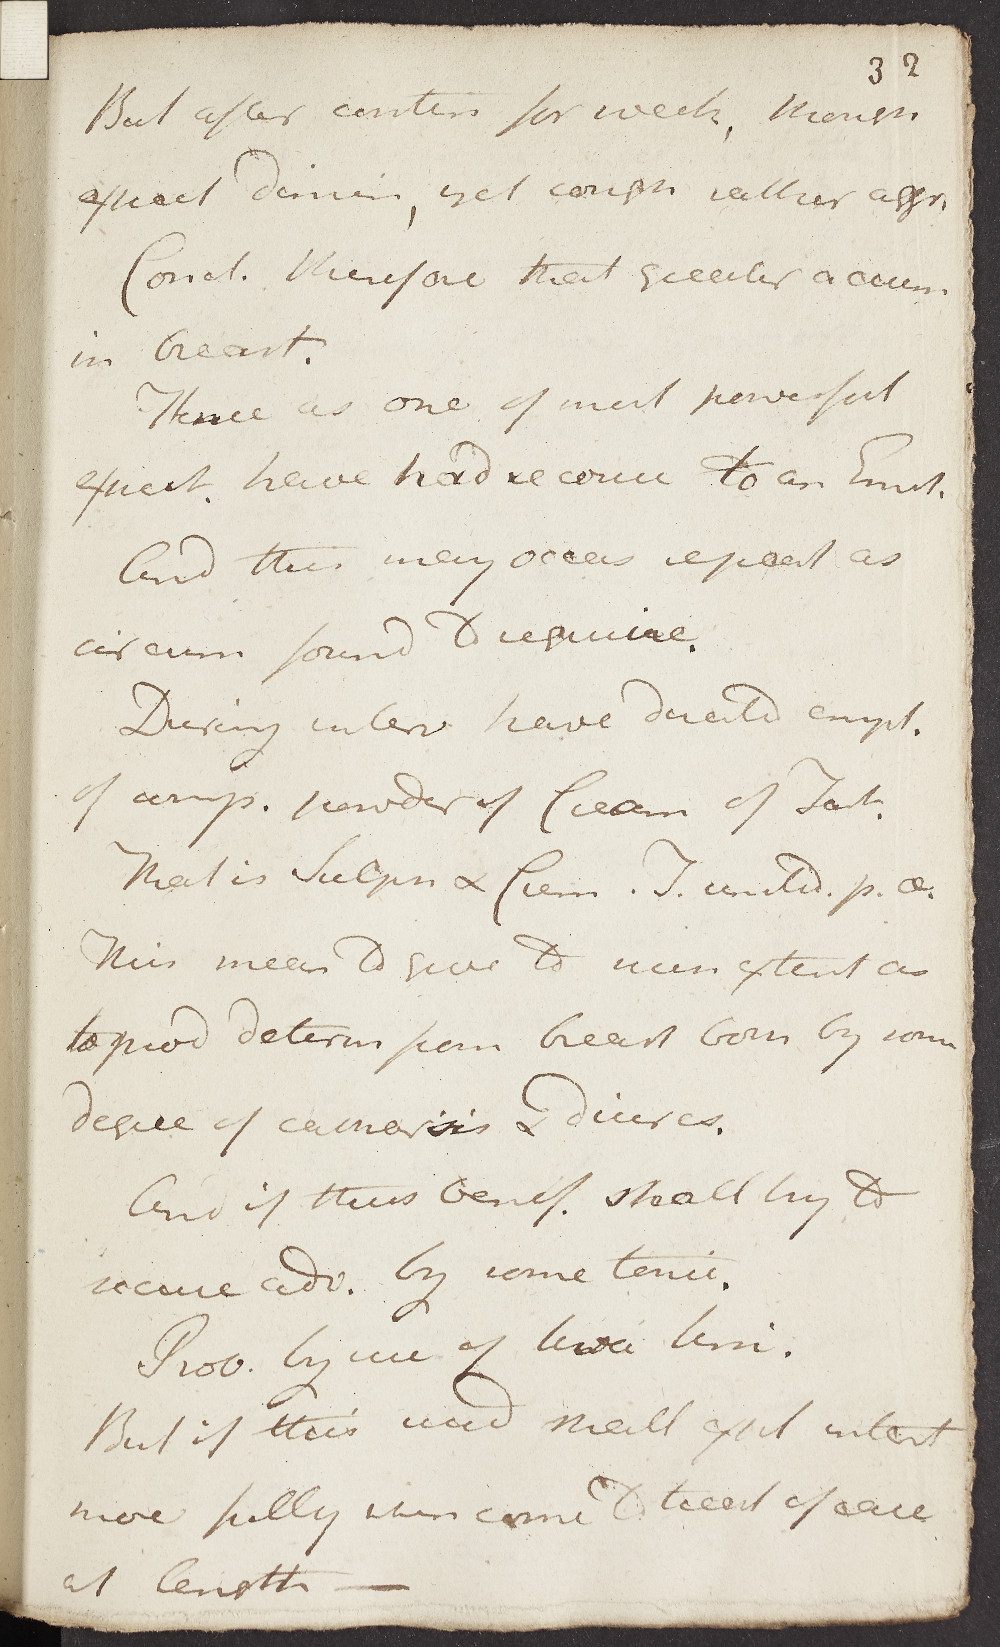 32
But after contin for week, though
expect dimin, yet cough rather aggr.
Concl. therefore that greater accum
in breast.
Hence as one of most powerful
expect. have had recour to an Emet.
And this may occas repeat as
circum found to require.
During interv have directed empl.
of comp. powder of Cream of Tart.
That is Sulph & Crem. T. united. p. æ.
This mean to give to such extent as
to prod determ from breast both by some
degree of catharsis & diures.
And if thus benef. shall try to
secure adv. by some tonic.
Prob. by use of
But if this used shall expl intent
more fully when come to treat of case
at length —